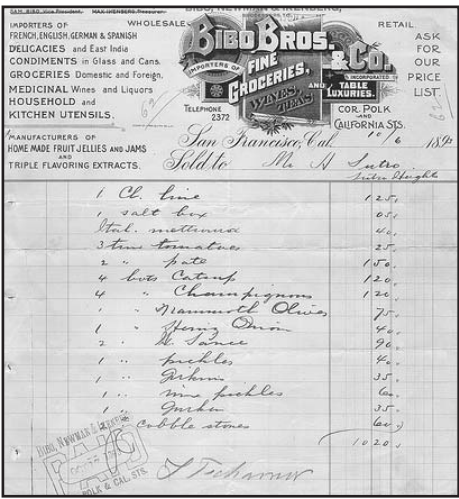 SAM. BIBO, Vice President. MAX IKENBERG, Treasurer.
BIBO, NEWMAN & IKENBERG,
WHOLESALE RETAIL
IMPORTERS OF
FRENCH, ENGLISH, GERMAN & SPANISH
DELICACIES and East India
CONDIMENTS in Glass and Cans.
GROCERIES Domestic and Foreign,
MEDICINAL Wines and Liquors
HOUSEHOLD and
KITCHEN UTENSILS.
MANUFACTURERS OF
HOME MADE FRUIT JELLIES AND JAMS
AND
TRIPLE FLAVORING EXTRACTS.
BIBO BROS.
& CO.
INCORPORATED
IMPORTERS OF
FINE
GROCERIES,
AND TABLE
LUXURIES.
WINES,
TEAS
TELEPHONE
2372
COR. POLK
AND
CALIFORNIA STS.
ASK
FOR
OUR
PRICE
LIST.
San Francisco, Cal. 10/6 189
Sold to Mr A Sutro
Sutro Heights
1 Cl. line 125
1 salt box 05
Ital. 40
3 tins tomatoes 25
2 " pate 150
4 bots Catsup 120
4 " Champignons 120
1 " Mammoth Olives 75
1 " Onion 40
2 " Sauce 90
1 " pickles 40
1 " 35
1 " pickles 60
1 " Gurken 35
cobble stones 60
1020
BIBO, NEWMAN & IKENBERG
PAID
POLK & CAL. STS.